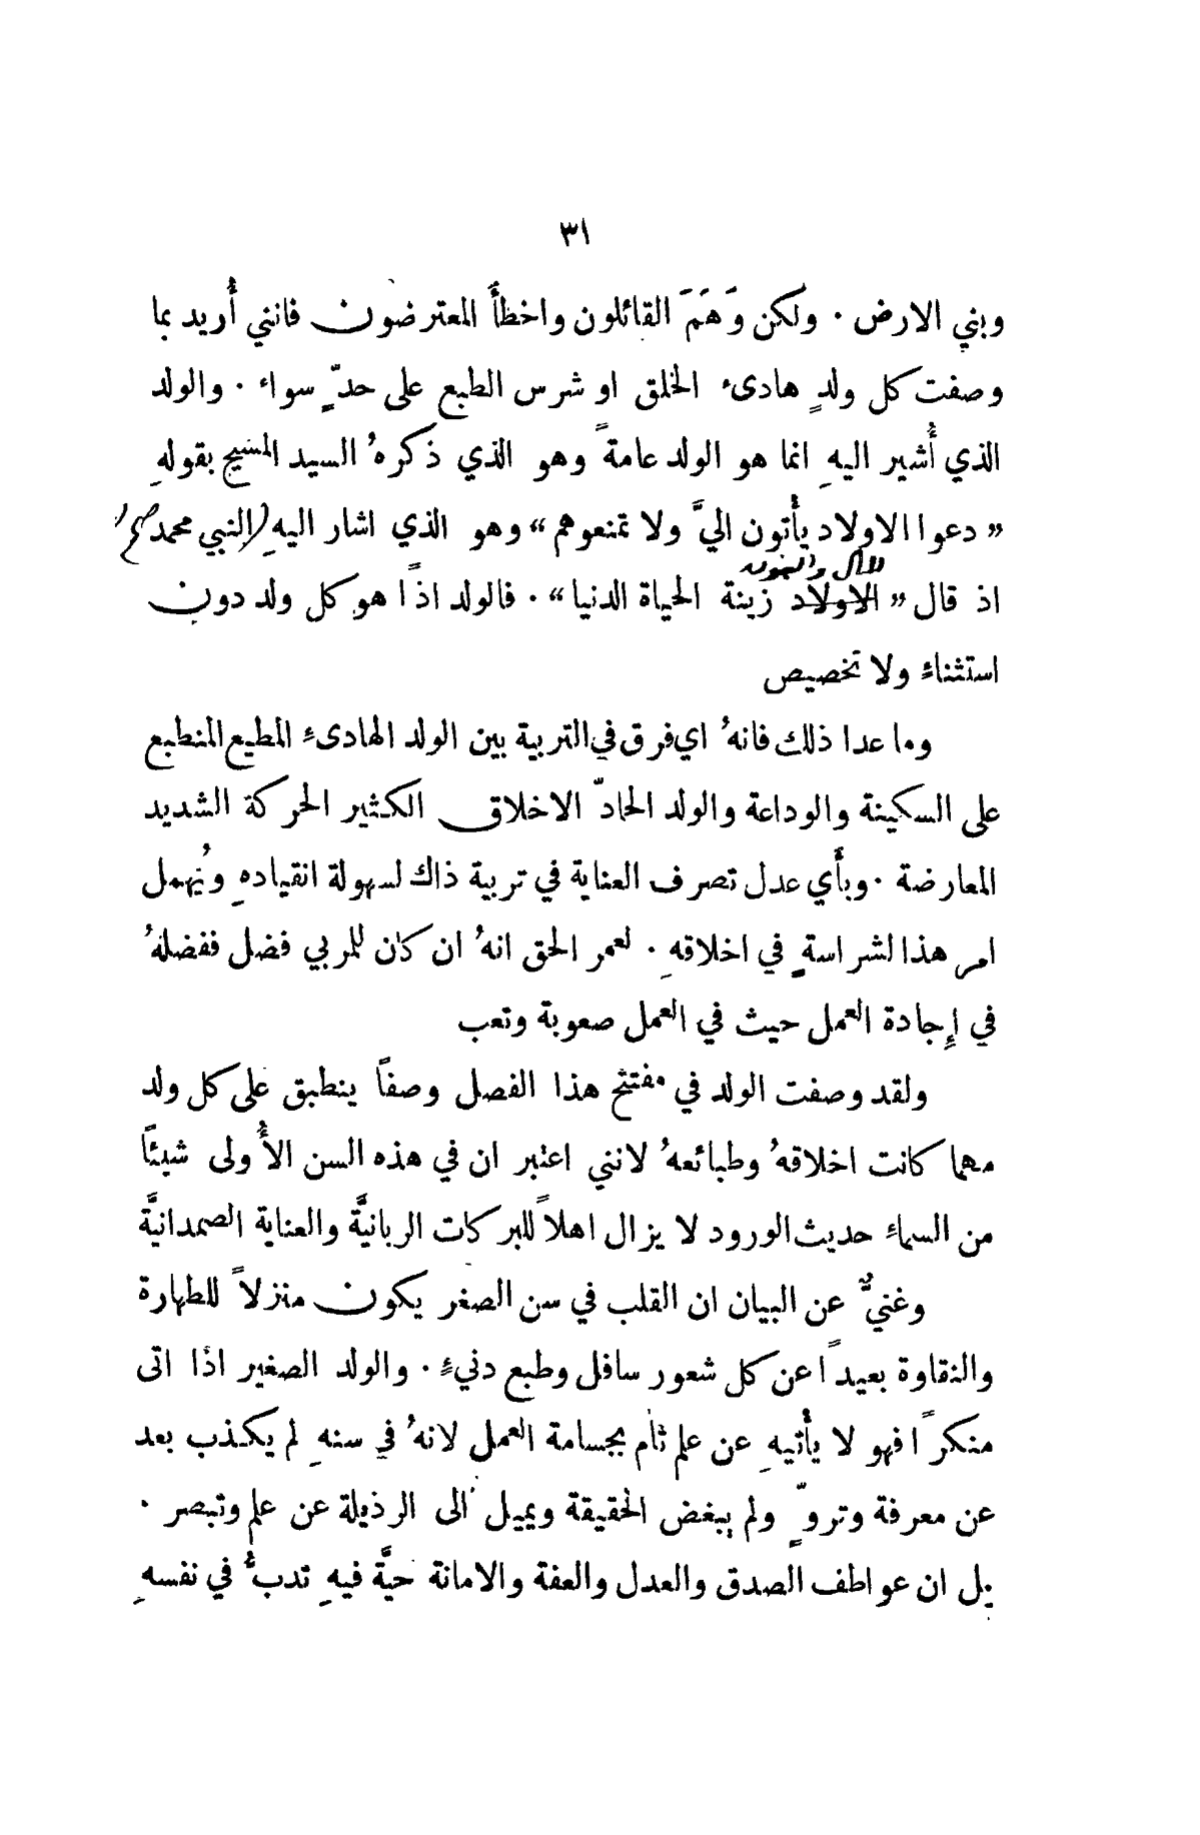 ٣١
وبني الارض . ولكن وَهَمَ القائلون واخطأَ المعترضون فانني أُريد بما
وصفت كل ولدٍ هادىء الخلق او شرس الطبع على حدٍّ سواء . والولد
الذي أُشير اليهِ انما هو الولد عامةً وهو الذي ذكرهُ السيد المسيح بقولهِ
« دعوا الاولاد يأْتون اليَّ ولا تمنعوهم » وهو الذي اشار اليهِ (النبي محمد صلعم)
المال والبنون
اذ قال « الاولاد زينة الحياة الدنيا » . فالولد اذًا هو كل ولد دون
استثناءٍ ولا تخصيص
وما عدا ذلك فانهُ اي فرق في التربية بين الولد الهادىءِ المطيع المنطبع
على السكينة والوداعة والولد الحادّ الاخلاق الكثير الحركة الشديد
المعارضة . وبأَي عدل تصرف العناية في تربية ذاك لسهولة انقيادهِ ويُهمل
امر هذا لشراسةٍ في اخلاقهِ . لعمر الحق انهُ ان كان للمربي فضل ففضلهُ
في إِجادة العمل حيث في العمل صعوبة وتعب
ولقد وصفت الولد في مفتتح هذا الفصل وصفًا ينطبق على كل ولد
مهما كانت اخلاقهُ وطبائعهُ لانني اعتبر ان في هذه السن الأُولى شيئًا
من السماءِ حديث الورود لا يزال اهلاً للبركات الربانيَّة والعناية الصمدانيَّة
وغنيٌّ عن البيان ان القلب في سن الصغر يكون منزلاً للطهارة
والنقاوة بعيدًا عن كل شعور سافل وطبع دنيءٍ . والولد الصغير اذا اتى
منكرًا فهو لا يأْتيهِ عن علم تام بجسامة العمل لانهُ في سنهِ لم يكذب بعد
عن معرفة وتروٍّ ولم يبغض الحقيقة ويميل الى الرذيلة عن علم وتبصر .
بل ان عواطف الصدق والعدل والعفة والامانة حيَّة فيهِ تدبُّ في نفسهِ